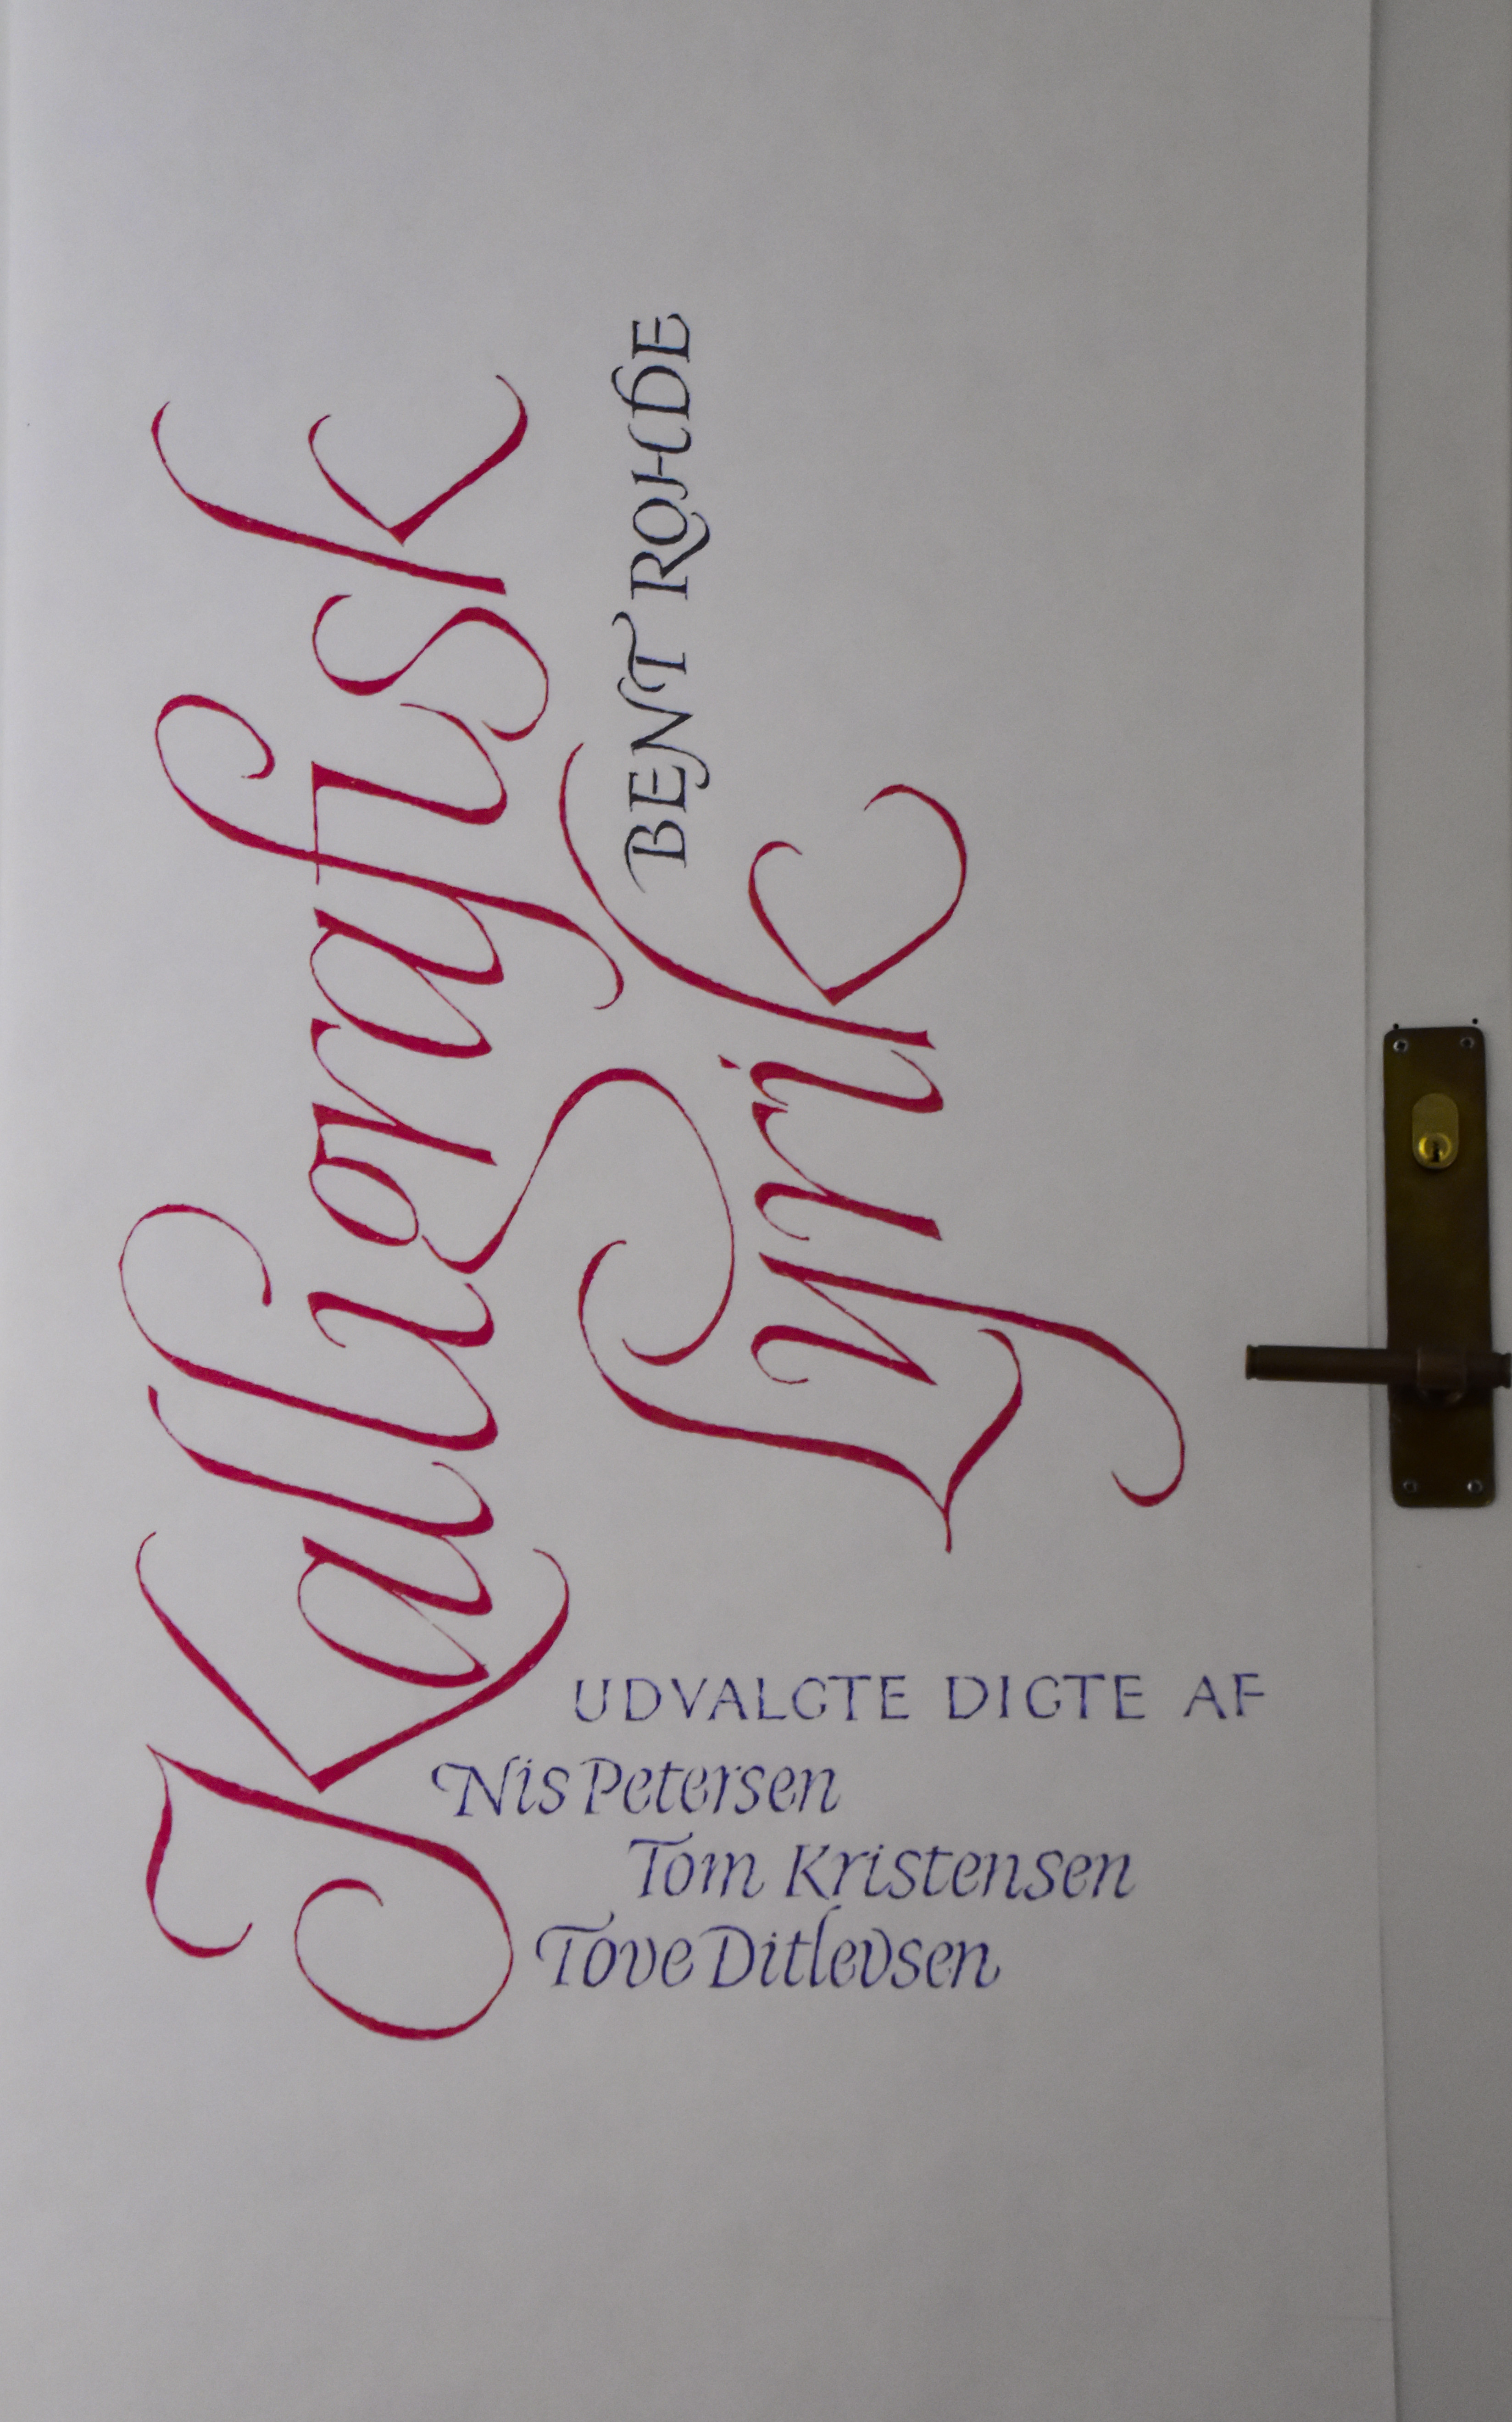 Kalligrafisk
Lyrik
BENT ROHDE
UDVALGTE DIGTE AF
Nis Petersen
Tom Kristensen
Tove Ditlevsen